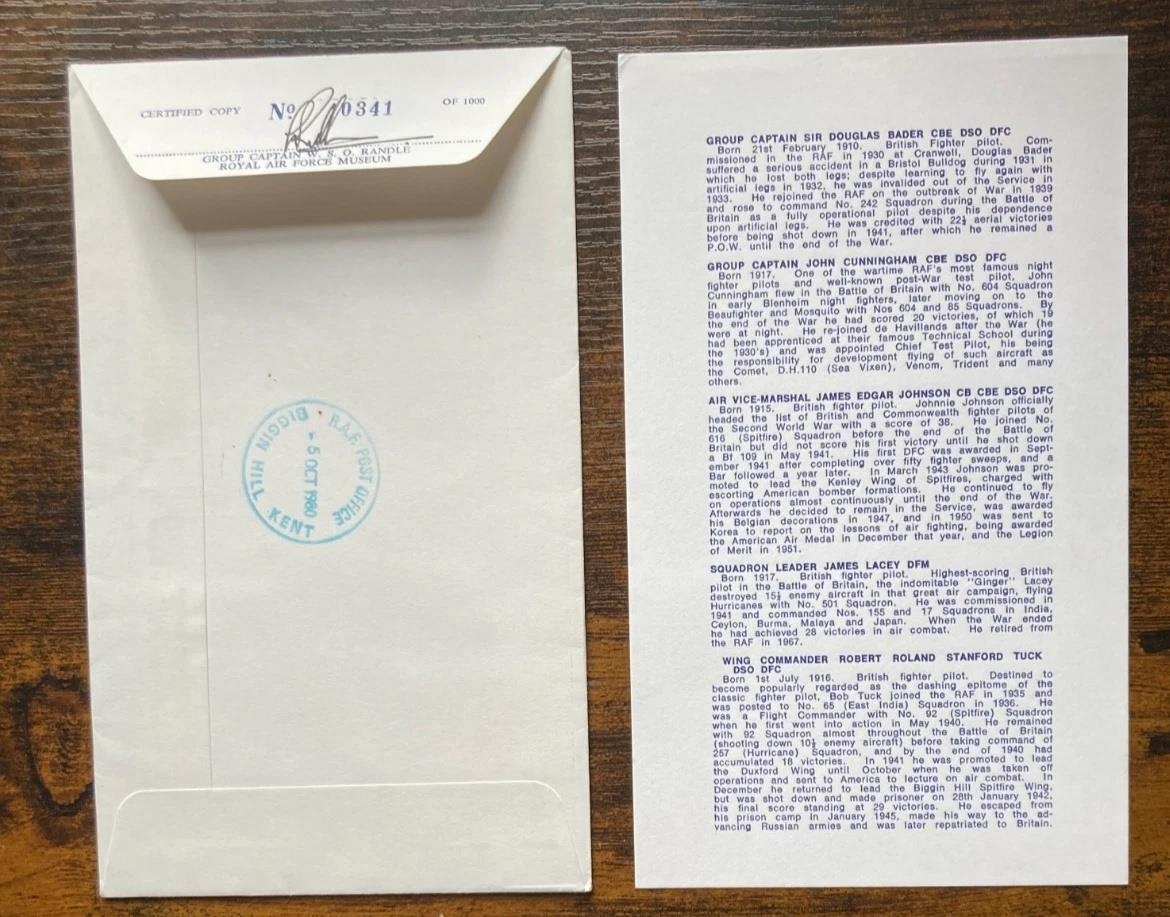 CERTIFIED COPY No 00341 OF 1000
GROUP CAPTAIN W. S. O. RANDLE
ROYAL AIR FORCE MUSEUM
R.A.F. POST OFFICE
BIGGIN HILL
5 OCT 1980
KENT
GROUP CAPTAIN SIR DOUGLAS BADER CBE DSO DFC
Born 21st February 1910. British Fighter pilot. Com-
missioned in the RAF in 1930 at Cranwell, Douglas Bader
suffered a serious accident in a Bristol Bulldog during 1931 in
which he lost both legs; despite learning to fly again with
artificial legs in 1932, he was invalided out of the Service in
1933. He rejoined the RAF on the outbreak of War in 1939
and rose to command No. 242 Squadron during the Battle of
Britain as a fully operational pilot despite his dependence
upon artificial legs. He was credited with 22½ aerial victories
before being shot down in 1941, after which he remained a
P.O.W. until the end of the War.
GROUP CAPTAIN JOHN CUNNINGHAM CBE DSO DFC
Born 1917. One of the wartime RAF's most famous night
fighter pilots and well-known post-War test pilot, John
Cunningham flew in the Battle of Britain with No. 604 Squadron
in early Blenheim night fighters, later moving on to the
Beaufighter and Mosquito with Nos 604 and 85 Squadrons. By
the end of the War he had scored 20 victories, of which 19
were at night. He re-joined de Havillands after the War (he
had been apprenticed at their famous Technical School during
the 1930's) and was appointed Chief Test Pilot, his being
the responsibility for development flying of such aircraft as
the Comet, D.H.110 (Sea Vixen), Venom, Trident and many
others.
AIR VICE-MARSHAL JAMES EDGAR JOHNSON CB CBE DSO DFC
Born 1915. British fighter pilot. Johnnie Johnson officially
headed the list of British and Commonwealth fighter pilots of
the Second World War with a score of 38. He joined No.
616 (Spitfire) Squadron before the end of the Battle of
Britain but did not score his first victory until he shot down
a Bf 109 in May 1941. His first DFC was awarded in Sept-
ember 1941 after completing over fifty fighter sweeps, and a
Bar followed a year later. In March 1943 Johnson was pro-
moted to lead the Kenley Wing of Spitfires, charged with
escorting American bomber formations. He continued to fly
on operations almost continuously until the end of the War.
Afterwards he decided to remain in the Service, was awarded
his Belgian decorations in 1947, and in 1950 was sent to
Korea to report on the lessons of air fighting, being awarded
the American Air Medal in December that year, and the Legion
of Merit in 1951.
SQUADRON LEADER JAMES LACEY DFM
Born 1917. British fighter pilot. Highest-scoring British
pilot in the Battle of Britain, the indomitable "Ginger" Lacey
destroyed 15½ enemy aircraft in that great air campaign, flying
Hurricanes with No. 501 Squadron. He was commissioned in
1941 and commanded Nos. 155 and 17 Squadrons in India,
Ceylon, Burma, Malaya and Japan. When the War ended
he had achieved 28 victories in air combat. He retired from
the RAF in 1967.
WING COMMANDER ROBERT ROLAND STANFORD TUCK
DSO DFC
Born 1st July 1916. British fighter pilot. Destined to
become popularly regarded as the dashing epitome of the
classic fighter pilot, Bob Tuck joined the RAF in 1935 and
was posted to No. 65 (East India) Squadron in 1936. He
was a Flight Commander with No. 92 (Spitfire) Squadron
when he first went into action in May 1940. He remained
with 92 Squadron almost throughout the Battle of Britain
(shooting down 10½ enemy aircraft) before taking command of
257 (Hurricane) Squadron, and by the end of 1940 had
accumulated 18 victories. In 1941 he was promoted to lead
the Duxford Wing until October when he was taken off
operations and sent to America to lecture on air combat. In
December he returned to lead the Biggin Hill Spitfire Wing,
but was shot down and made prisoner on 28th January 1942,
his final score standing at 29 victories. He escaped from
his prison camp in January 1945, made his way to the ad-
vancing Russian armies and was later repatriated to Britain.